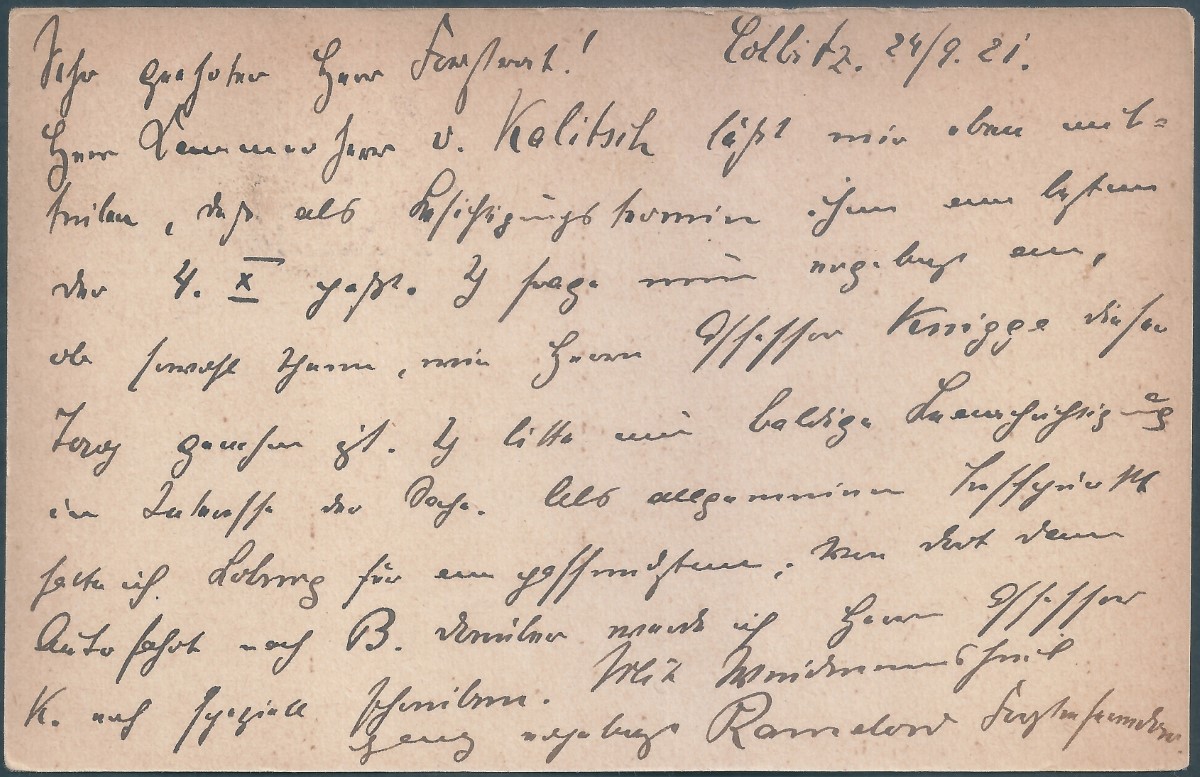 Sehr geehrter Herr Forstrat! Colbitz. 24/9. 21.
Herr Kammerherr v. Kalitsch läßt mir eben mit=
teilen, daß als Besichtigungstermin ihm am besten
der 4. X paßt. Ich frage nun ergebenst an,
ob sowohl Ihnen, wie Herrn Assessor Knigge dieser
Tag genehm ist. Ich bitte um baldige Benachrichtigung
im Interesse der Sache. Als allgemeinen Treffpunkt
halte ich Loburg für am passendsten, von dort dann
Autofahrt nach B. darüber werde ich Herrn Assessor
K. noch speziell schreiben. Mit Weidmannsheil
ganz ergebenst Ramelow